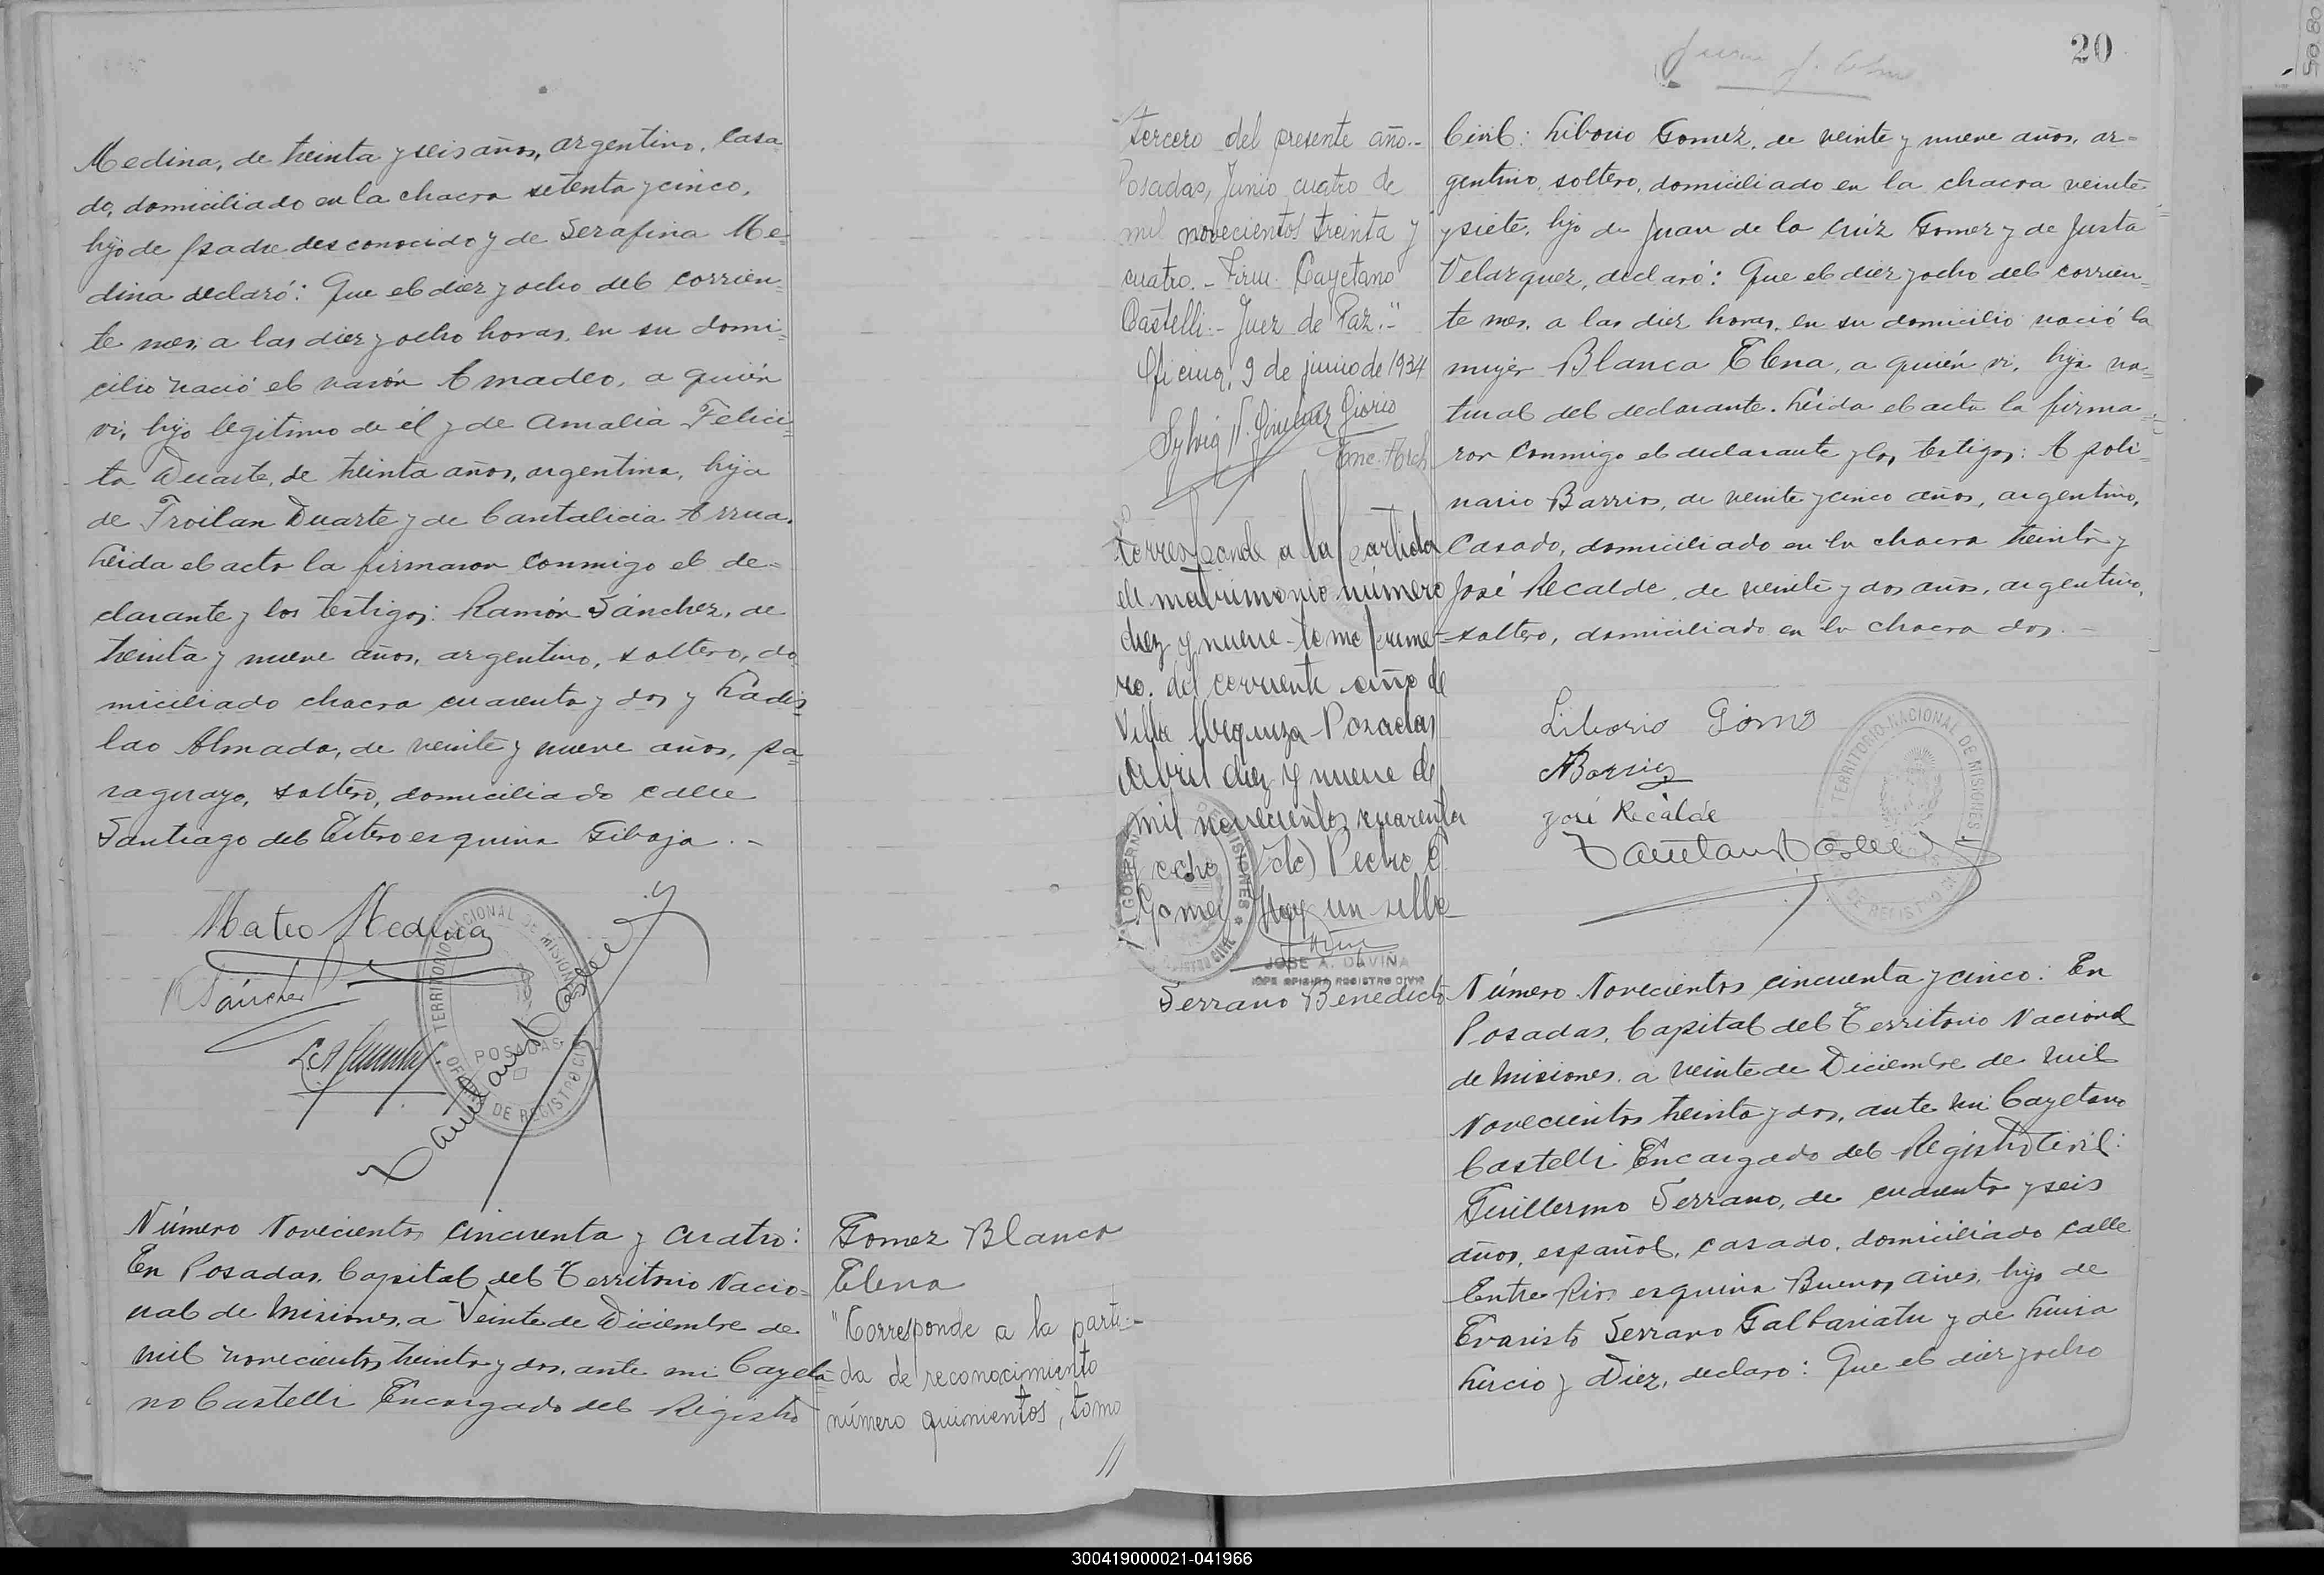 Medina, de treinta y seis años, argentino, casa
do, domiciliado en la chacra setenta y cinco,
hijo de padre desconocido y de Serafina Me-
dina declaró: Que el diez y ocho del corrien-
te mes, a las diez y ocho horas, en su domi-
cilio nació el varón Amadeo, a quién
vi, hijo legítimo de él y de Amalia Felici-
ta Duarte, de treinta años, argentina, hija
de Troilan Duarte y de Cantalicia Arrua.
Leida el acta la firmaron conmigo el de-
clarante y los testigos: Ramón Sánchez, de
treinta y nueve años, argentino, soltero, do
miciliado chacra cuarenta y dos y Ladis-
lao Almada, de veinte y nueve años, pa-
raguayo, soltero, domiciliado calle
Santiago del Estero esquina Gibaja . -
Mateo Medina
R Sánchez
TERRITORIO NACIONAL DE MISIONES
POSADAS
OFICINA DE REGISTRO CIVIL
Número Novecientos cincuenta y cuatro:
En Posadas, Capital del Territorio Nacio-
nal de Misiones, a Veinte de Diciembre de
mil novecientos treinta y dos, ante mi Cayeta-
no Castelli Encargado del Registro
Gomez Blanca
Elena
"Corresponde a la parti-
da de reconocimiento
número quinientos, tomo
//
20
tercero del presente año.-
Posadas, Junio cuatro de
mil novecientos treinta y
cuatro. - Firm. Cayetano
Castelli.- Juez de Paz."-
Oficina, 9 de junio de 1934
Enc. Arch.
Corresponde a la partida
de matrimonio número
diez y nueve - tomo prime-
ro. del corriente año de
Villa Urquiza - Posadas
Abril diez y nueve de
mil novecientos cuarenta
y ocho (do) Pedro C.
Gomez Hay un sello
JOSE A. DAVIÑA
JEFE OFICINA REGISTRO CIVIL
Civil: Liborio Gomez, de veinte y nueve años, ar-
gentino, soltero, domiciliado en la chacra veinte
y siete, hijo de Juan de la Cruz Gomez y de Justa
Velazquez, declaró: Que el diez y ocho del corrien-
te mes, a las diez horas, en su domicilio nació la
mujer Blanca Elena, a quién vi, hija na-
tural del declarante. Leida el acta la firma-
ron conmigo el declarante y los testigos: Apoli-
nario Barrios, de veinte y cinco años, argentino,
casado, domiciliado en la chacra treinta y
José Recalde, de veinte y dos años, argentino,
soltero, domiciliado en la chacra dos. -
Liborio Gomo
ABarrios
José Recalde
TERRITORIO NACIONAL DE MISIONES
Serrano Benedicto
Número Novecientos cincuenta y cinco: En
Posadas, Capital del Territorio Nacional
de Misiones, a veinte de Diciembre de mil
Novecientos treinta y dos, ante mi Cayetano
Castelli Encargado del Registro Civil:
Guillermo Serrano, de cuarenta y seis
años, español, casado, domiciliado calle
Entre Rios esquina Buenos Aires, hijo de
Evaristo Serrano Galbariatu y de Luisa
Lucio y Diez, declaro: Que el diez y ocho
300419000021-041966